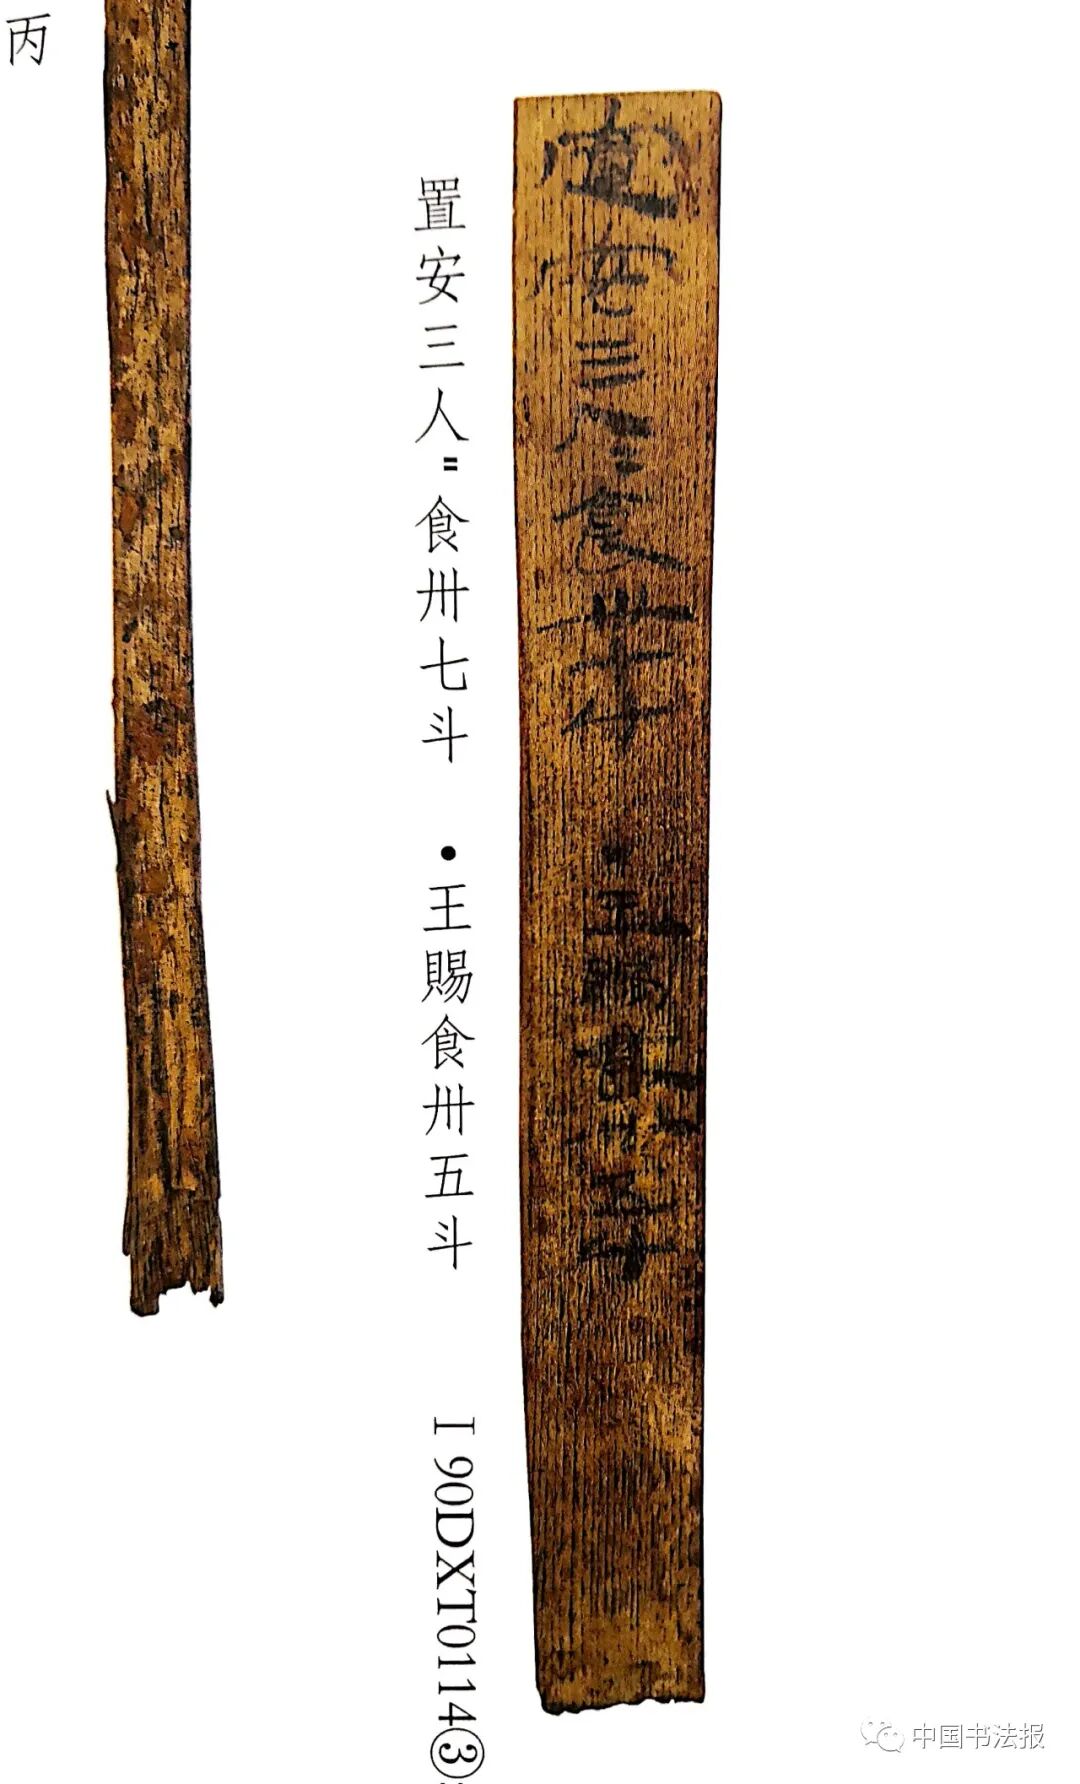 置安三人＝食卅七斗　•王賜食卅五斗　Ⅰ90DXT0114③
丙
中国书法报